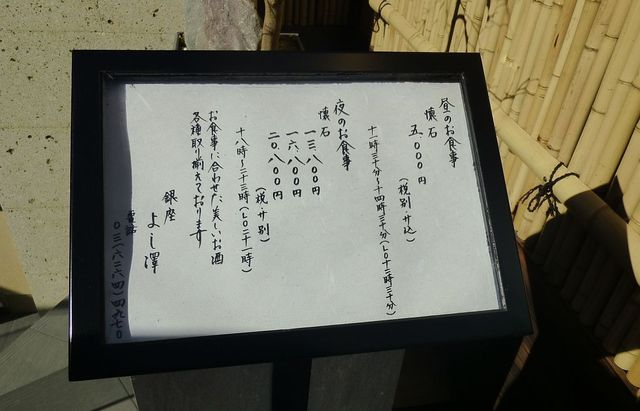 昼のお食事
懐石
五、000円
(税別・サ込)
十一時三十分〜十四時三十分(LO十三時三十分)
夜のお食事
懐石
一三、八00円
一六、八00円
二0、八00円
(税・サ別)
十八時〜二十三時(LO二十一時)
お食事に合わせた、美しいお酒
各種取り揃えております
銀座
よし澤
電話
0三(六二六四)四九七0